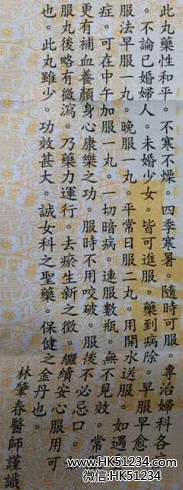 此丸藥性和平。不寒不燥。四季寒暑。隨時可服。專治婦科各症
。不論已婚婦人。未婚少女。皆可進服。藥到病除。早服早愈
服法早服一丸。晚服一丸。平常日服二丸。用開水送服。如遇
症。可在中午加服一丸。一切暗病。連服數瓶。無不見效。常
更有補血養顏身心康樂之功。服時不用咬破。服後不必忌口。
服丸後略有微瀉。乃藥力運行。去瘀生新之徵。繼續安心服用可
也。此丸雖少。功效甚大。誠女科之聖藥。保健之金丹也。
林肇春醫師謹識
www.HK51234.com
微信:HK51234.com